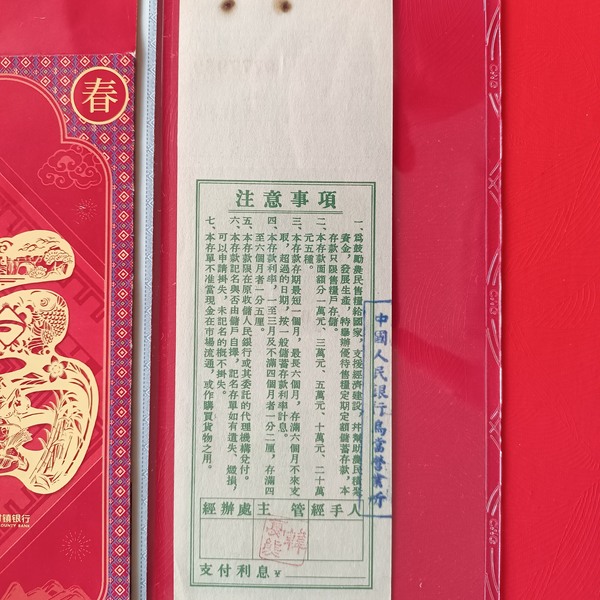 注意事項
一、爲鼓勵農民售糧給國家，支援經濟建設，幷幫助農民積聚
資金，發展生產，特舉辦優待售糧定期定額儲蓄存款，本
存款只限售糧戶存儲。
二、本存款面額分一萬元、三萬元、五萬元、十萬元、二十萬
元五種。
三、本存款存期最短一個月，最長六個月，存滿六個月不來支
取，超過的日期，按一般儲蓄存款利率計息。
四、本存款利率，一至三月及不滿四個月者一分二厘，存滿四
至六個月者一分五厘。
五、本存款限在原收儲人民銀行或其委託的代理機構兌付。
六、本存款記名與否由儲戶自擇，記名存單如有遺失、燬損，
可以申請掛失，未記名的概不掛失。
七、本存單不准當現金在市場流通，或作購買貨物之用。
經辦處主管 經手人
支付利息￥
中國人民銀行烏當營業所
春
村鎮銀行
COUNTY BANK